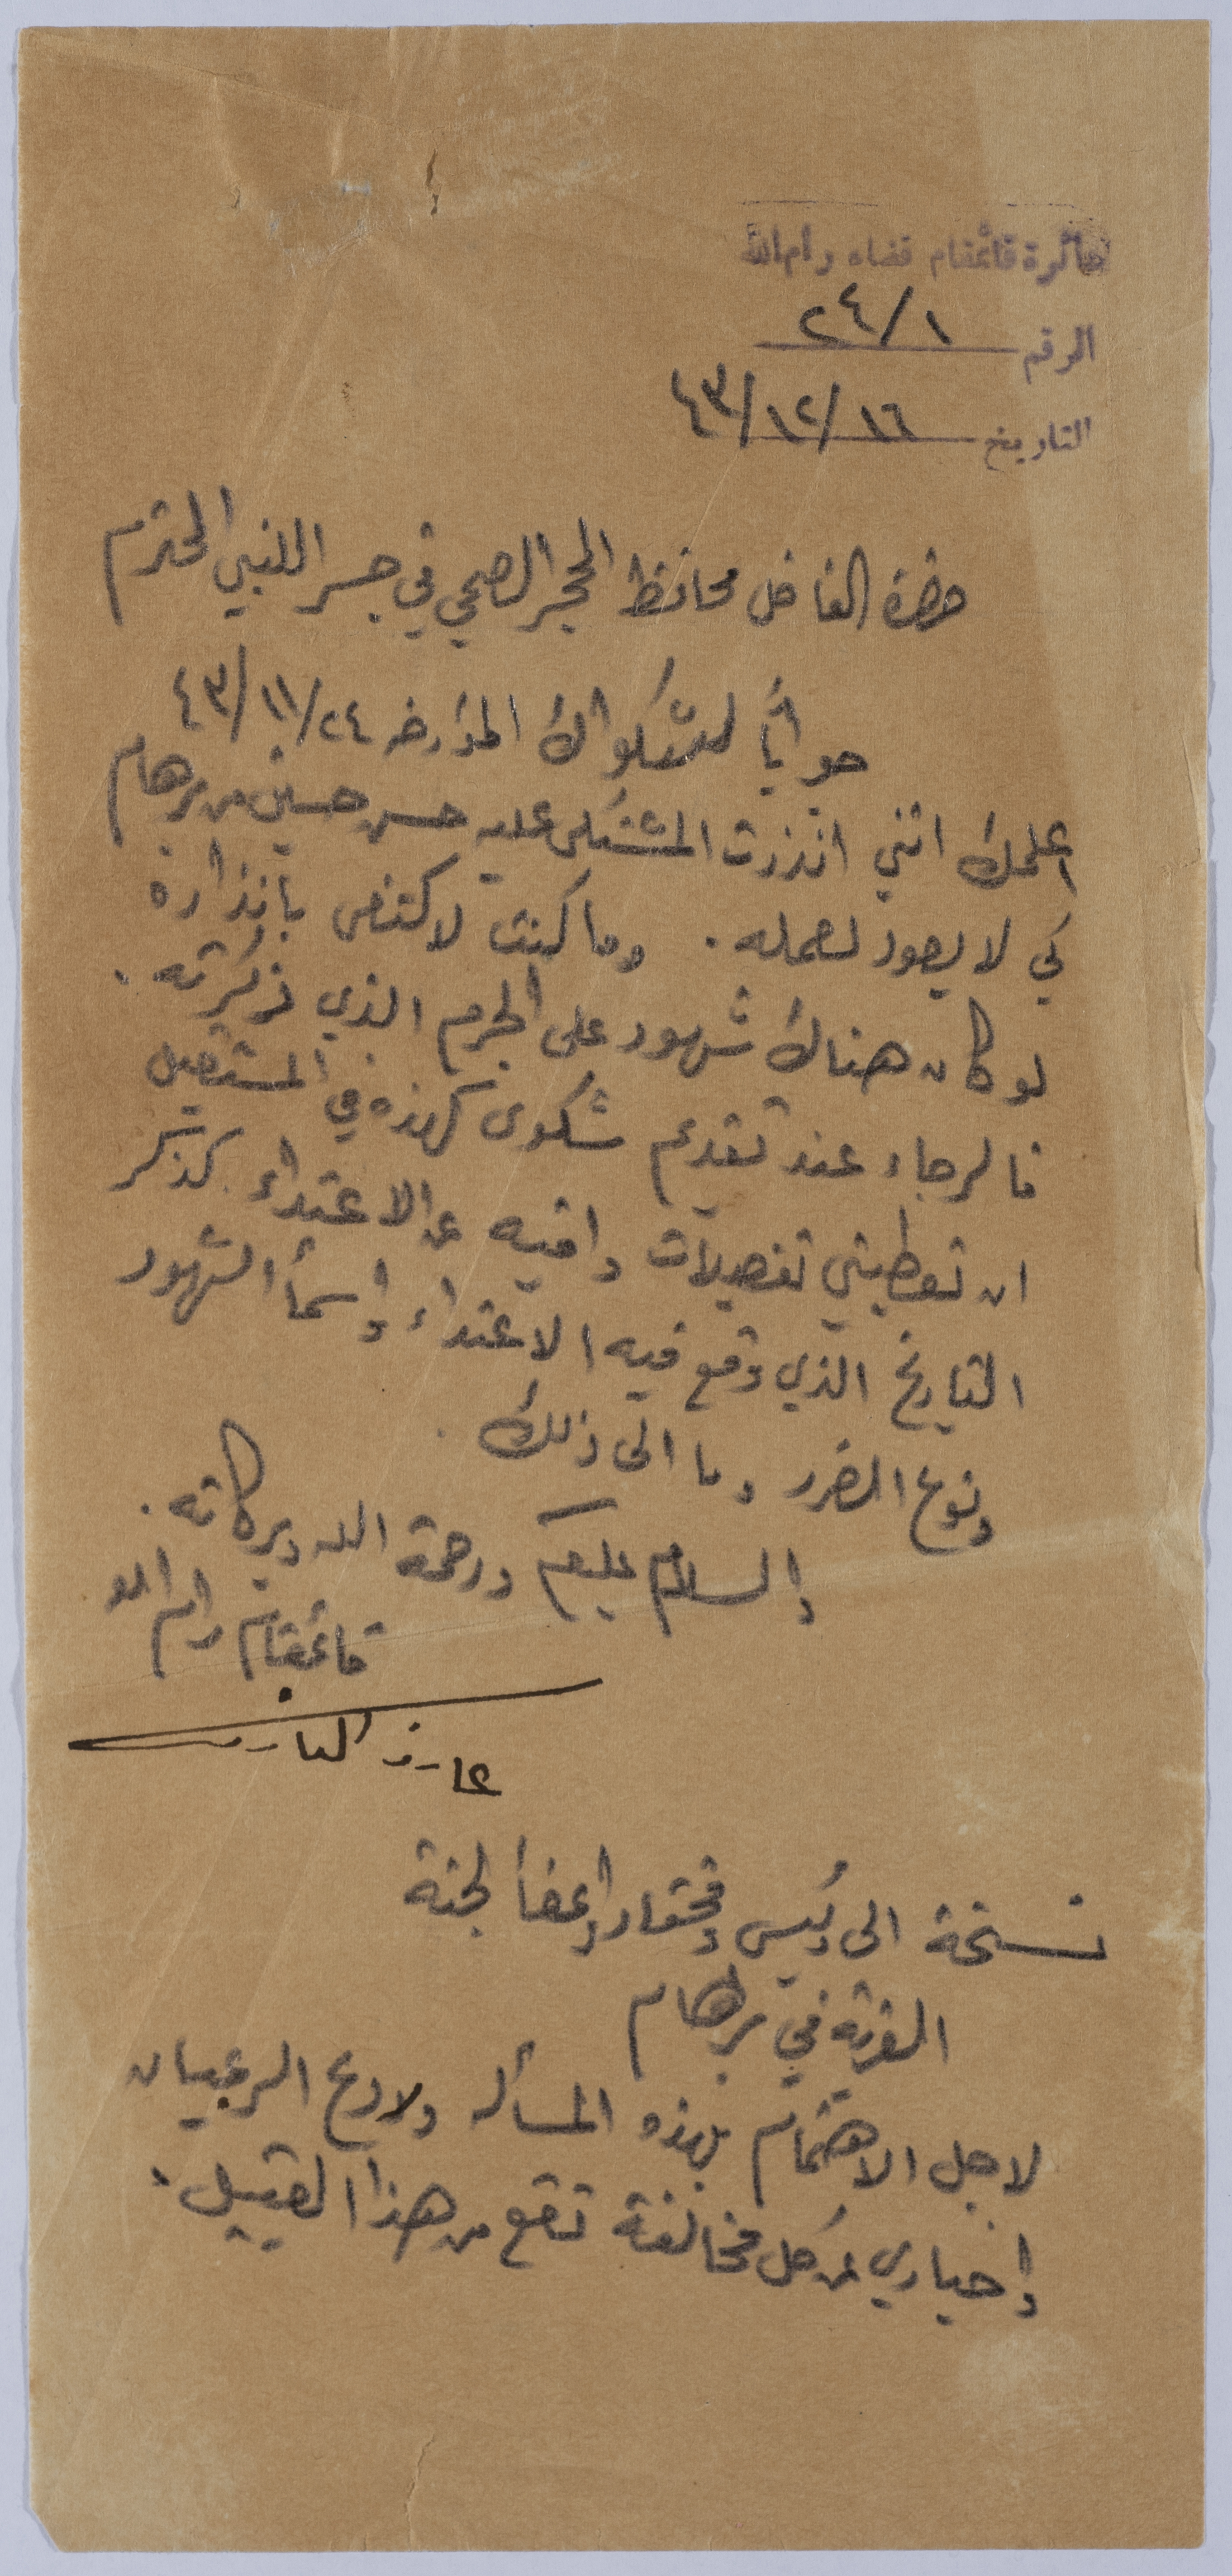 دائرة قائمقام قضاء رام الله
الرقم ٢٤/١
التاريخ ١٦/١٢/٤٣
حضرة الفاضل محافظ الحجر الصحي في جسر اللنبي المحترم
جواباً لشكواك المؤرخه ٢٤/١١/٤٣
اعلمك انني انذرت المشتكى عليه حسن حسين من برهام
كي لا يعود لعمله. وما كنت لاكتفى بانذاره
لو كان هناك شهود على الجرم الذي ذكرته.
فالرجاء عند تقديم شكوى كهذه في المستقبل
ان تعطيني تفصيلات وافيه عن الاعتداء كذكر
التاريخ الذي وقع فيه الاعتداء واسمأ الشهود
ونوع الضرر وما الى ذلك.
والسلام عليكم ورحمة الله وبركاته.
قائمقام رام الله
عارف العارف
نسخة الى رئيس ومختار واعضأ لجنة
القرية في برهام
لاجل الاهتمام بهذه المسأله ولردع الرعيان
واخباري عن كل مخالفة تقع من هذا القبيل.